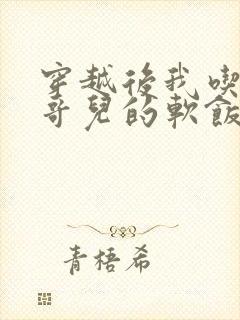 穿越後我喫
哥兒的軟飯
青梧希